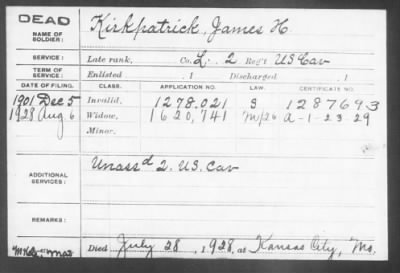 DEAD
NAME OF SOLDIER: Kirkpatrick, James H.
SERVICE: Late rank, Co. L. 2 Reg't US Cav
TERM OF SERVICE: Enlisted .1 Discharged .1
DATE OF FILING. CLASS. APPLICATION NO. LAW. CERTIFICATE NO.
1901 Dec 5 Invalid, 1278.021 S 1287693
1928 Aug 6 Widow, 1620,741 A-1-23-29
Minor.
ADDITIONAL SERVICES: Unassd 2. US. Cav
REMARKS:
Died July 28, 1928, at Kansas City, Mo.